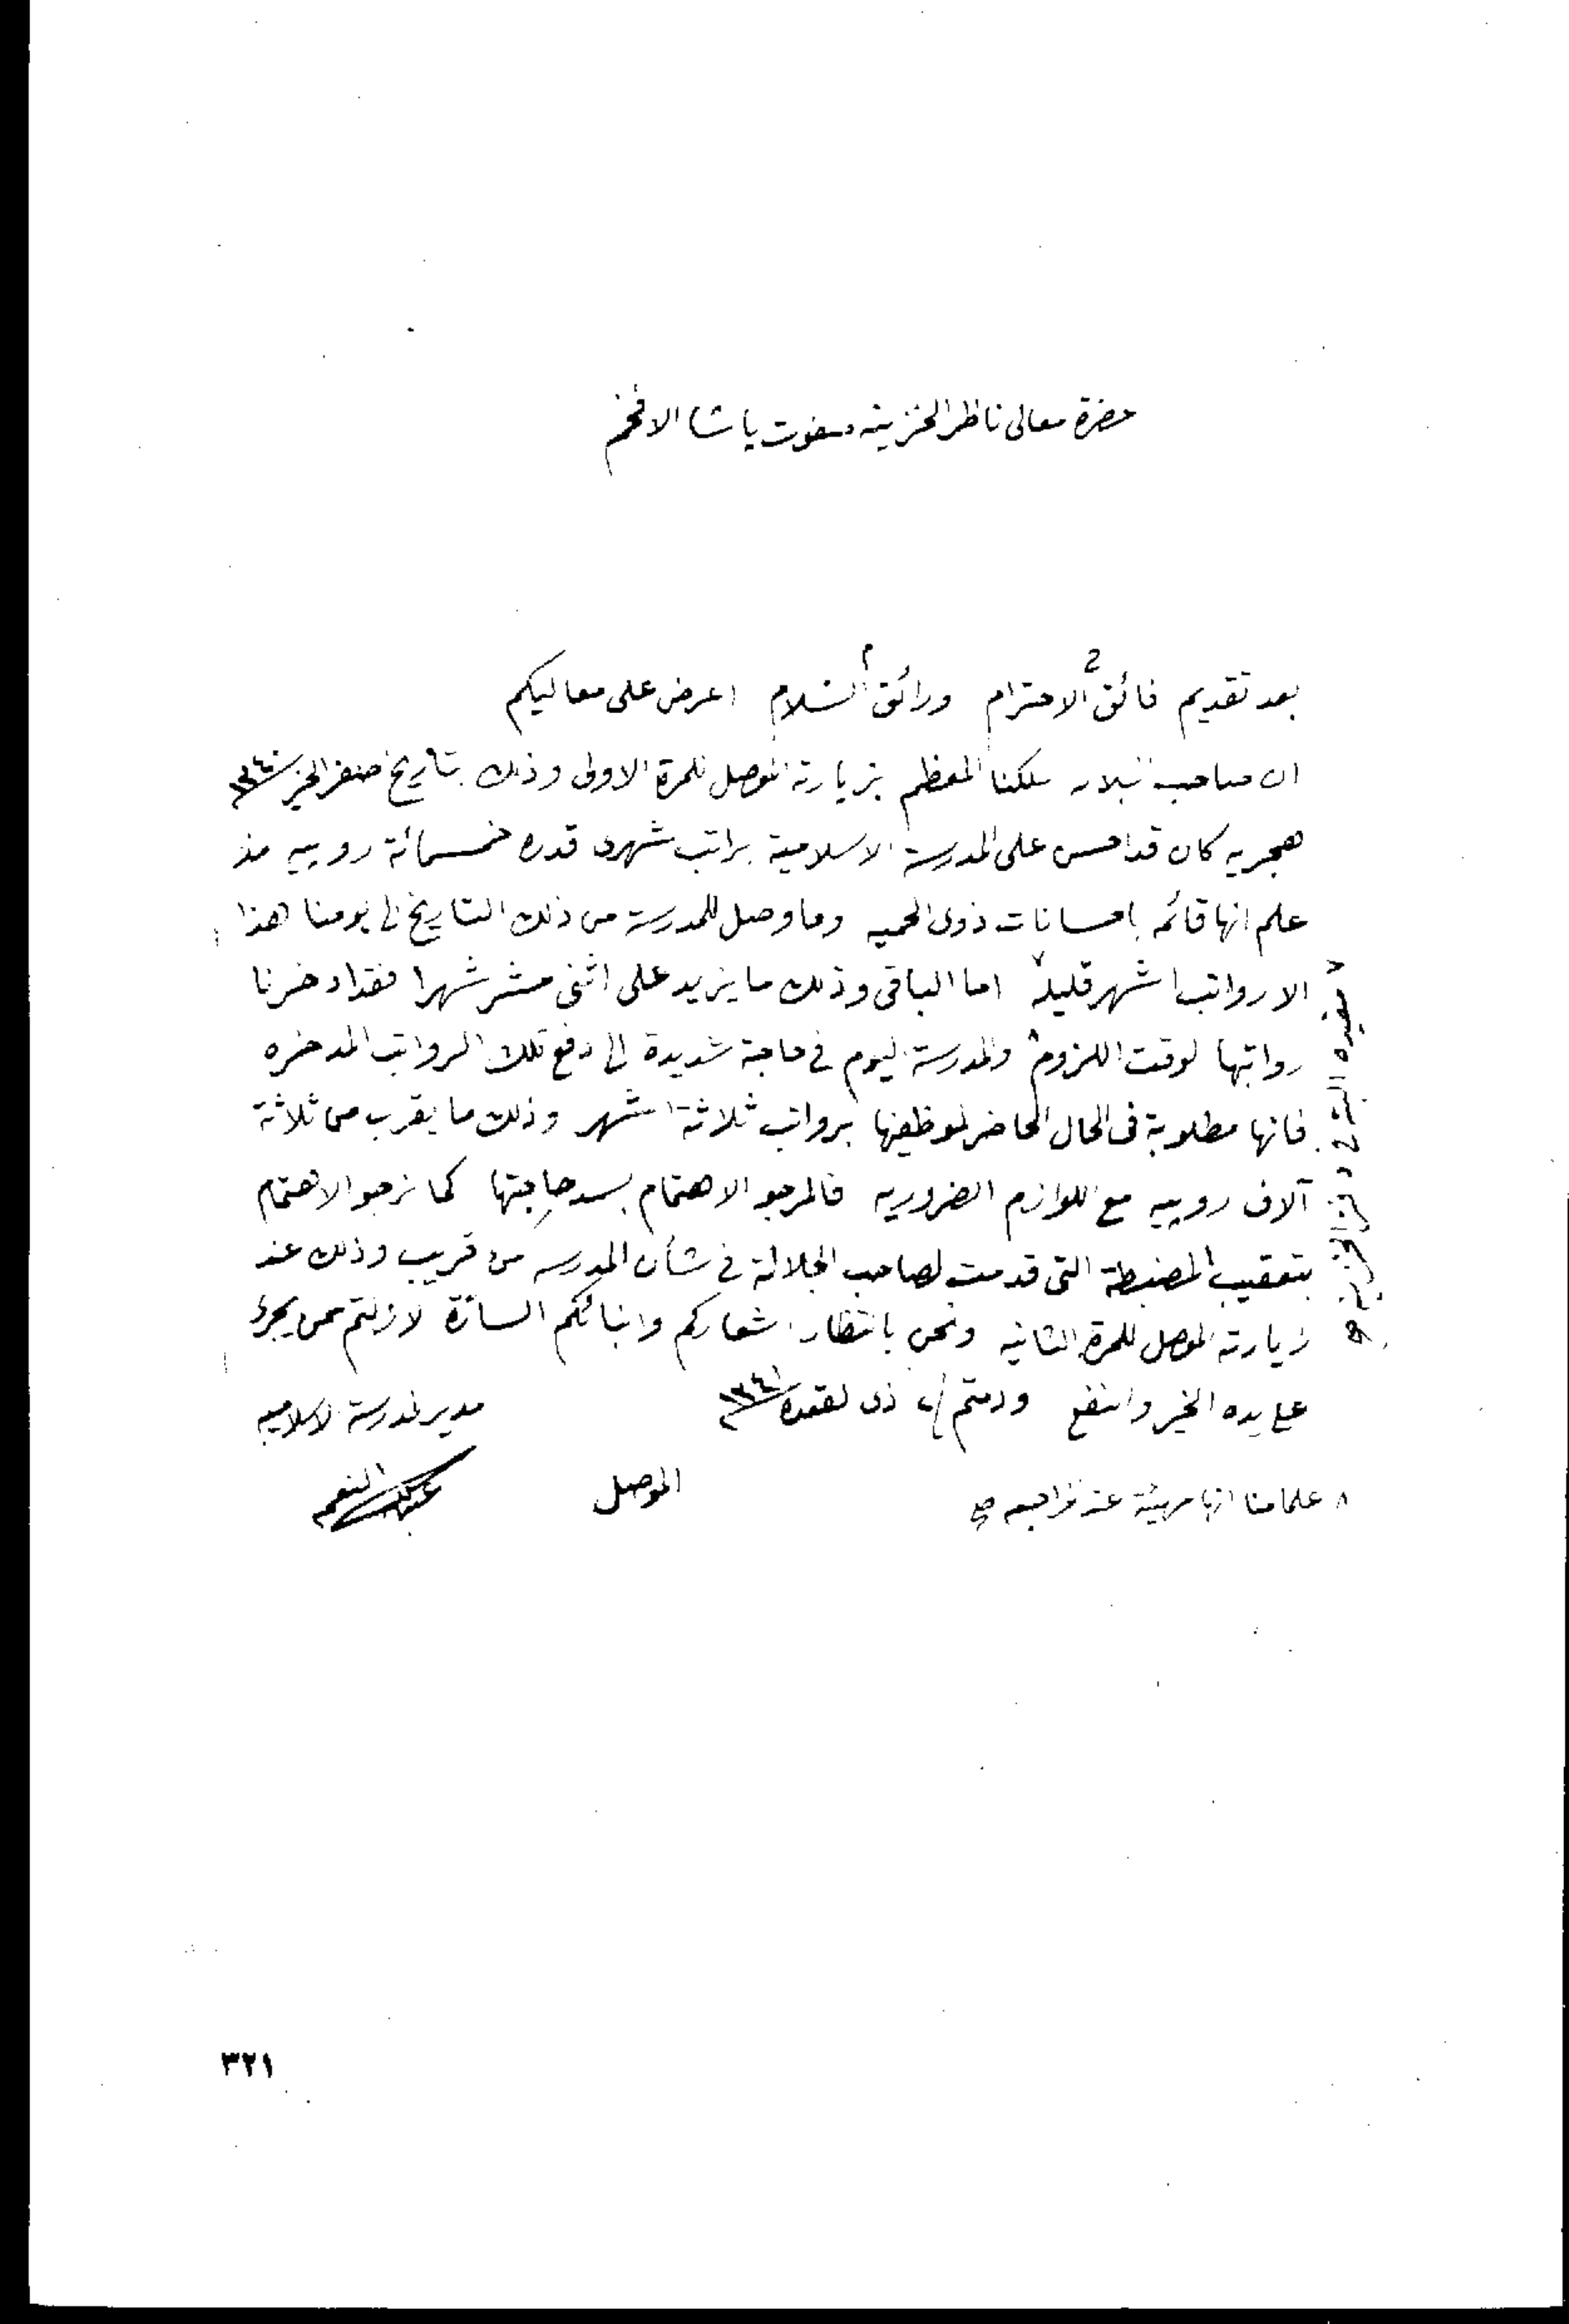 حضرة معالى ناظر الخزينه صفوت باشا الافخم
بعد تقديم فائق الاحترام ورائق السلام اعرض على معاليكم
ان صاحب ملكنا المعظم بزيارته الموصل للمرة الاولى وذلك بتاريخ صفر الخير سنة ١٣٤٠
هجريه كان قد احسن على المدرسة الاسلامية براتب شهرى قدره خمسمائة روبيه مذ
علم انها قائمه باحسانات ذوى الحميه وما وصل للمدرسة من ذلك التاريخ الى يومنا هذا
الا رواتب اشهر قليلة اما الباقى وذلك ما يزيد على اثنى عشر شهرا فقد ادخرنا
رواتبها لوقت اللزوم والمدرسة اليوم في حاجة شديدة الى دفع تلك الرواتب المدخره
فانها مطلوبة فى الحال الحاضر لموظفيها برواتب ثلاثة اشهر وذلك ما يقرب من ثلاثة
آلاف روبيه مع اللوازم الضروريه فالمرجو الاهتمام بسد حاجتها كما نرجو الاهتمام
بتعقيب المضبطة التى قدمت لصاحب الجلالة في شأن المدرسه من قريب وذلك عند
زيارته الموصل للمرة الثانيه ونحن بانتظار اشعاركم وانبائكم السارّة لازلتم ممن يجرى
على يده الخير والنفع ودمتم ذى القعده سنة ١٣٤١
مدير المدرسة الاسلاميه
الموصل
النعمه
علما منا انها
في الخزينة
٣٢١